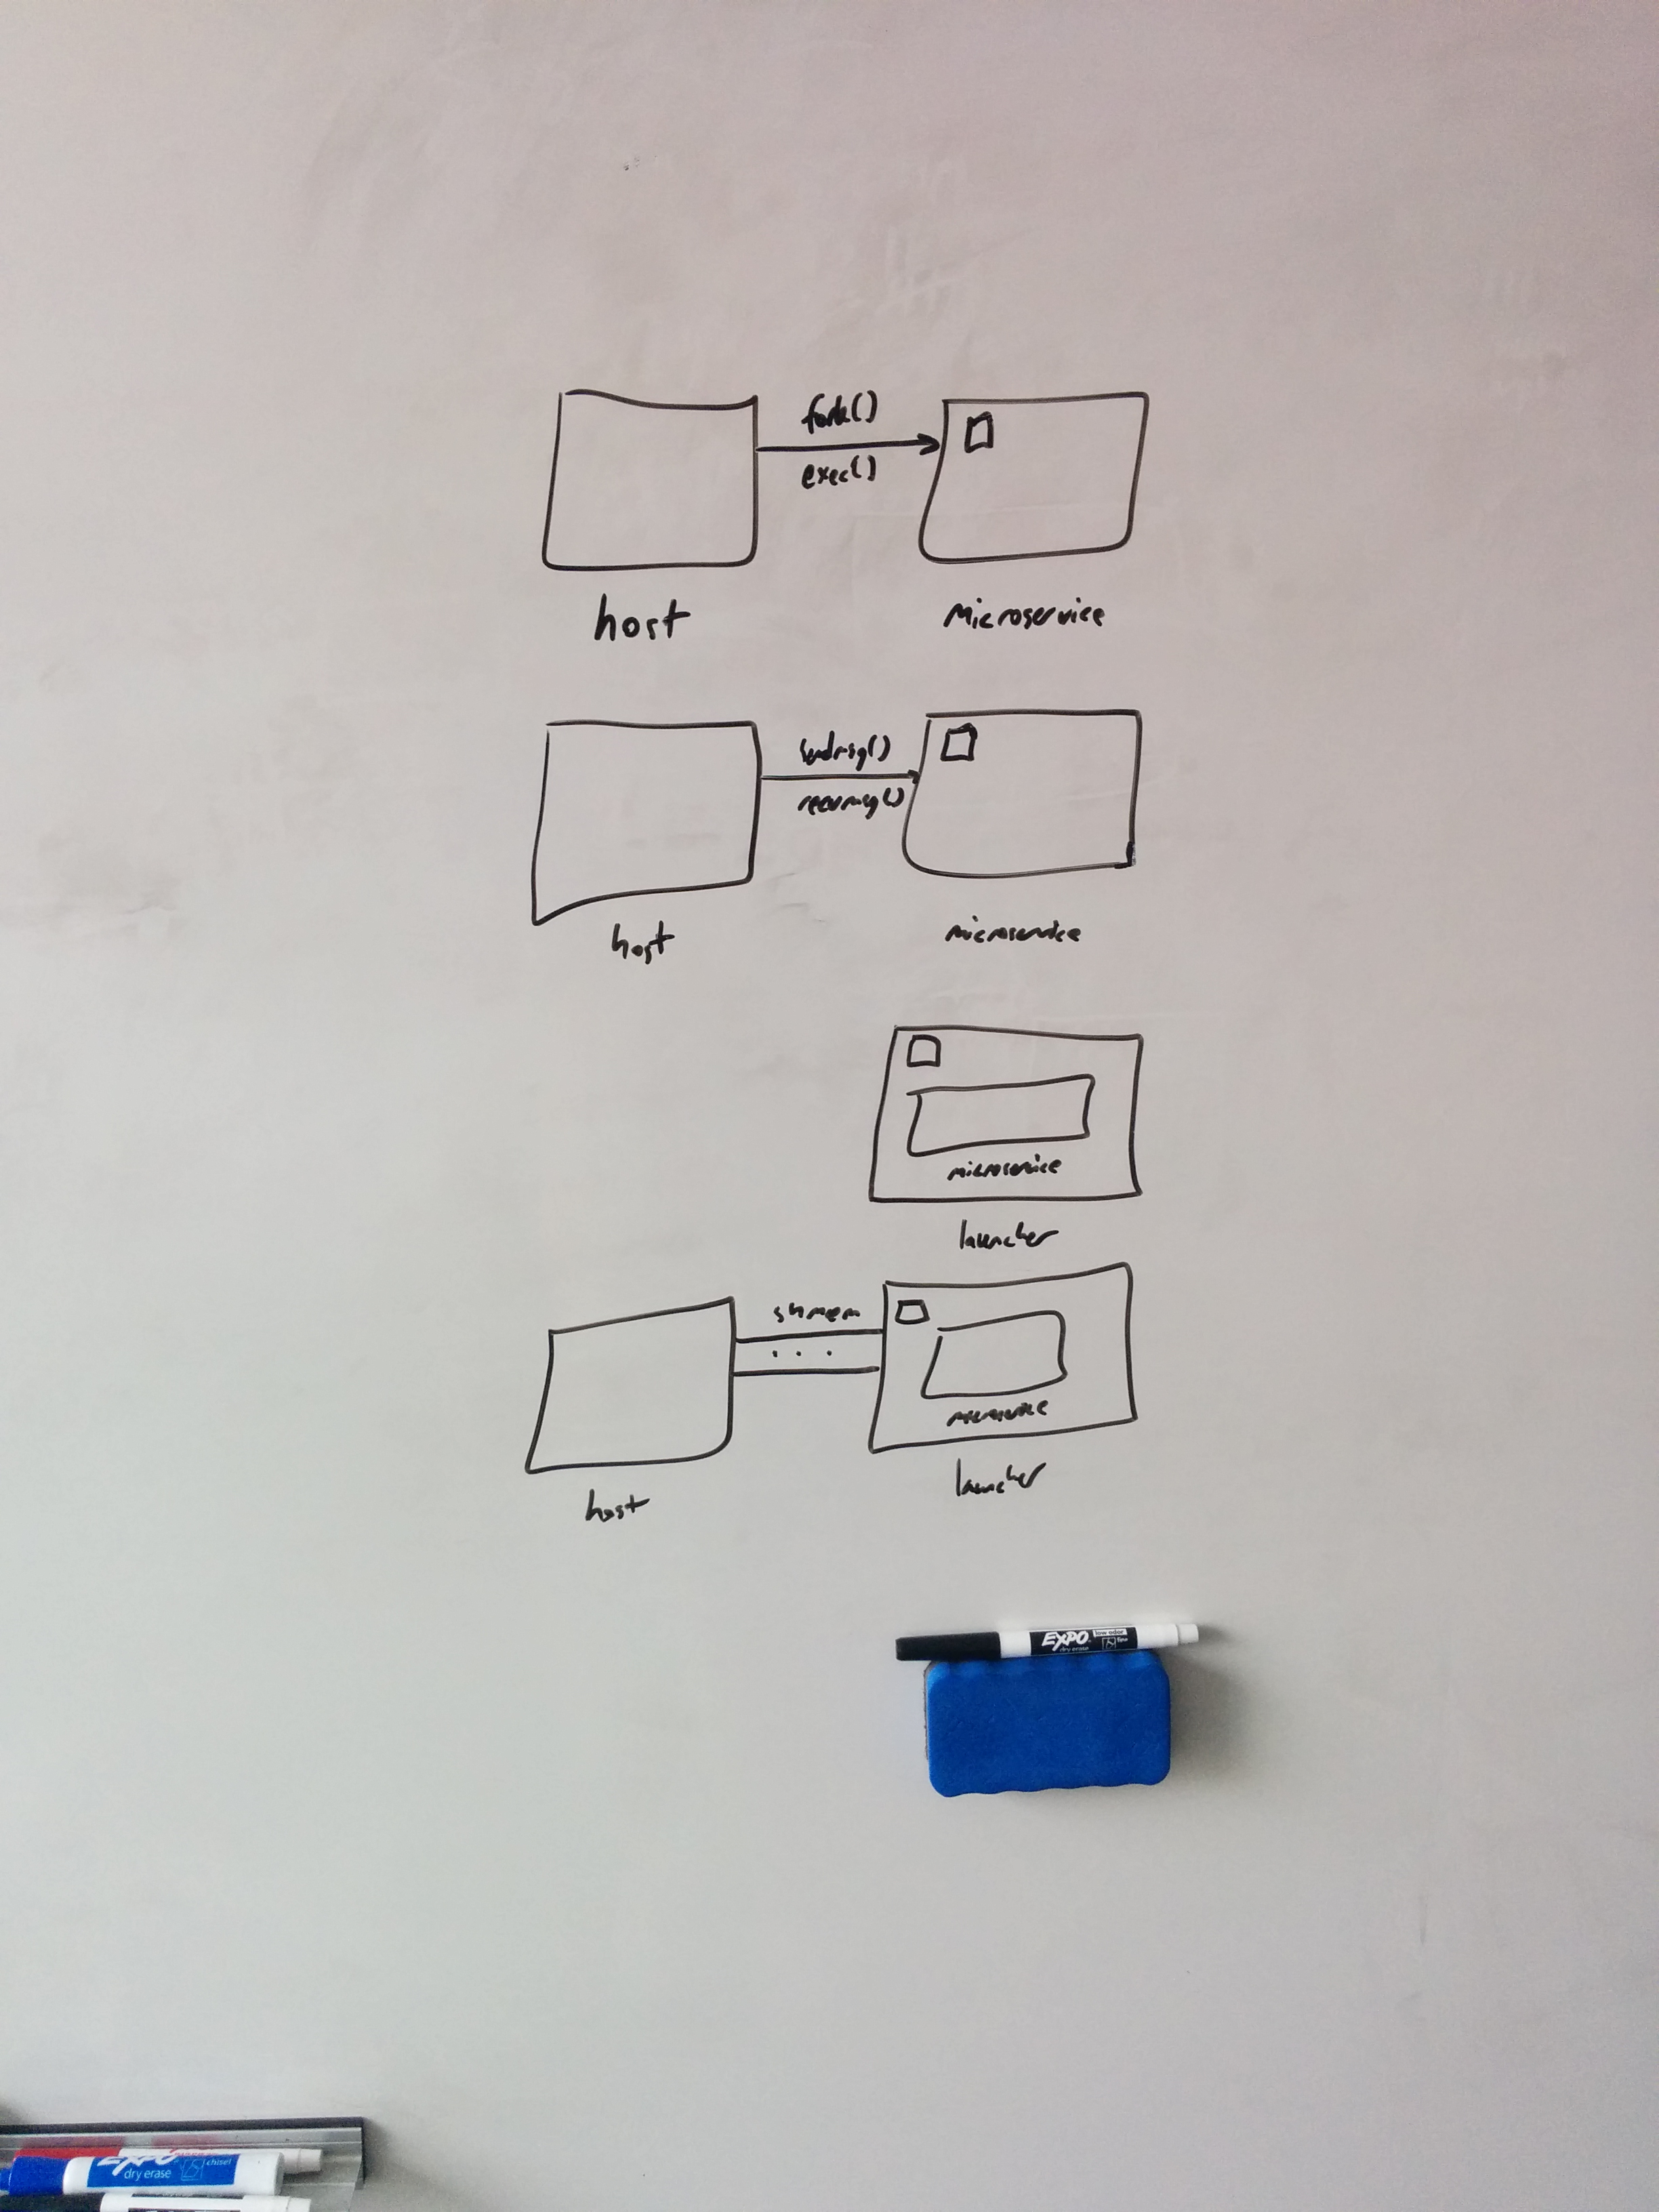 fork()
exec()
host
Microservice
sendmsg()
recvmsg()
host
microservice
microservice
launcher
shmem
. . .
microservice
launcher
host
EXPO low odor
dry erase fine
EXPO chisel
dry erase